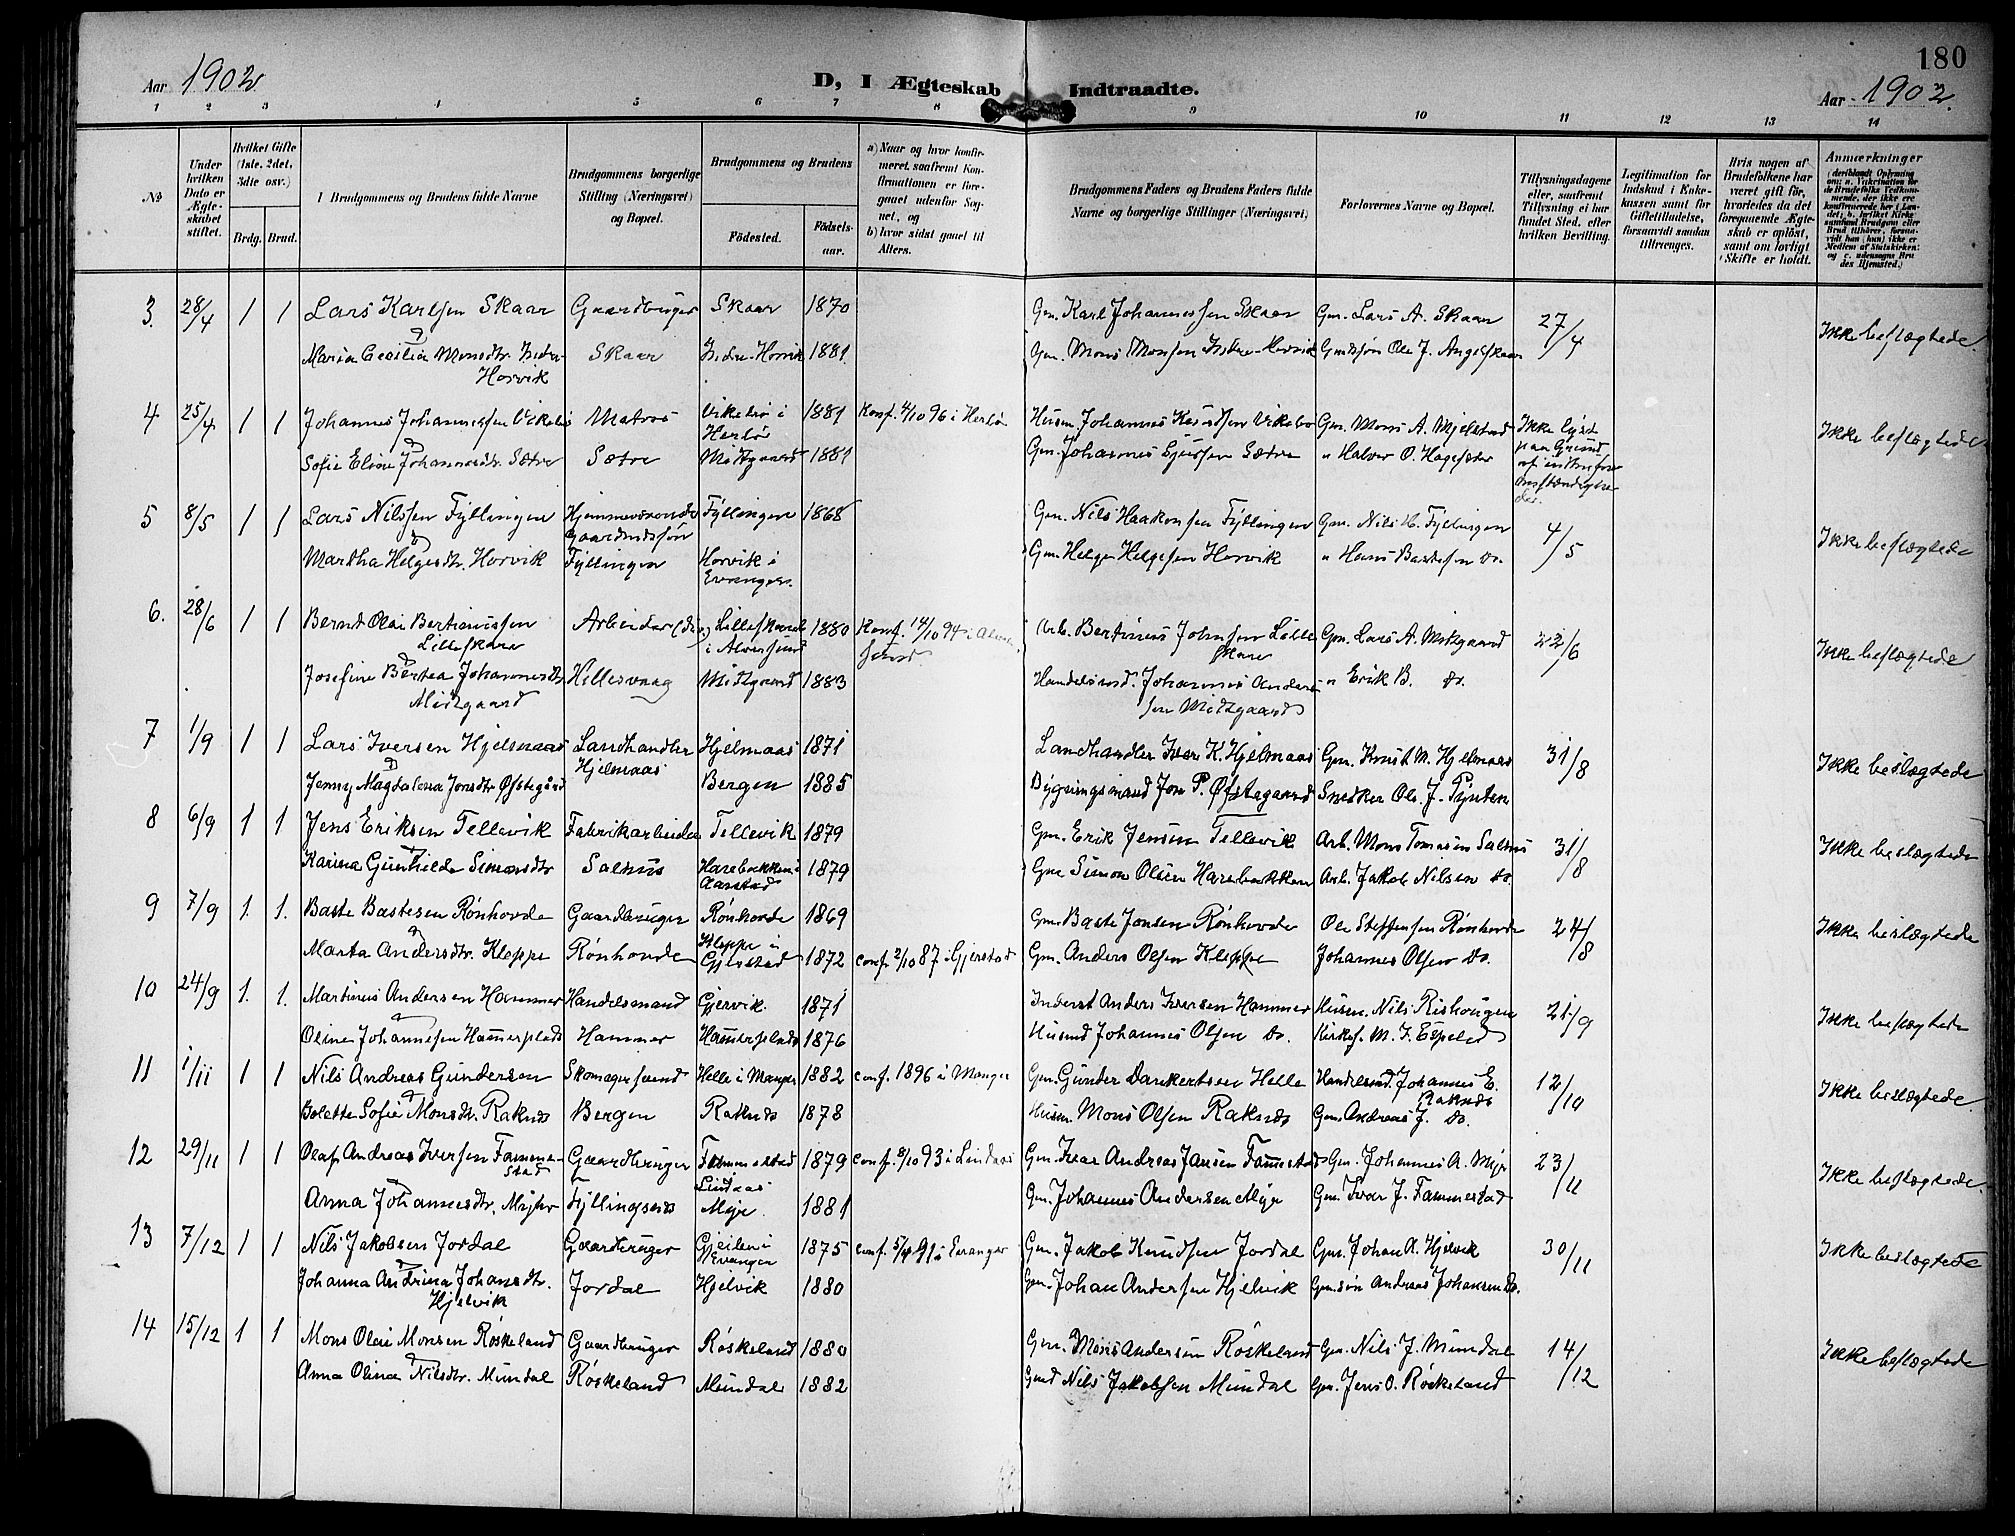 180
Aar 1902
D, I Ægteskab Indtraadte.
Aar 1902.
1 2 3 4 5 6 7 8 9 10 11 12 13 14
№
Under hvilken Dato er Ægteskabet stiftet.
Hvilket Gifte (1ste, 2det, 3die osv.)
Brdg. Brud.
Brudgommens og Brudens fulde Navne
Brudgommens borgerlige Stilling (Næringsvei) og Bopæl.
Brudgommens og Brudens
Fødested.
Fødsels-aar.
a) Naar og hvor konfirmeret, saafremt Konfirmationen er foregaaet udenfor Sognet, og
b) hvor sidst gaaet til Alters.
Brudgommens Faders og Brudens Faders fulde Navne og borgerlige Stillinger (Næringsvei)
Forlovernes Navne og Bopæl.
Tillysningsdagene eller, saafremt Tillysning ei har fundet Sted, efter hvilken Bevilling.
Legitimation for Indskud i Enkekassen samt for Giftetilladelse, forsaavidt saadan tiltrænges.
Hvis nogen af Brudefolkene har været gift før, hvorledes da det foregaaende Ægteskab er opløst, samt om lovligt Skifte er holdt.
Anmærkninger
3. 28/4 1 1 Lars Karlsen Skaar Gaardbruger Skaar 1870 Gm. Karl Johannessen Skaar Gm. Lars A. Skaar 27/4 Ikke beslægtede.
Maria Cecilia Monsdtr. Indre-Horvik Skaar Indre-Horvik 1881 Gm. Mons Monsen Indre-Horvik Ole J. Angelskaar
4 25/4 1 1 Johannes Johannessen Vikebø Matros Vikebø i Herlø 1881 Konf. 4/10 96 i Herlø Husm. Johannes Vikebø Gm. Mons A. Mjelstad Ikke lyst paa Grund af Ikke beslægtede
Sofie Eline Johannesdtr. Sætre Sætre Midtgaard 1881 Gm. Johannes Sætre " Halvor O. Hagesæter
5 8/5 1 1 Lars Nilssen Fyllingen Hjemmeværende Gaardmandssøn Fyllingen 1868 Gm. Nils Haakonsen Fyllingen Gm. Nils H. Fyllingen 4/5 Ikke beslægtede
Martha Helgesdtr. Horvik Fyllingen Horvik i Evanger. Gm. Helge Helgesen Horvik " Hans Bastesen Do.
6. 28/6 1 1 Bernt Olai Bertinussen Lilleskare Arbeider Lilleskare i Alversund 1880 Konf. 14/10 94 i Alversund. Arb. Bertinus Johnsen Lilleskare Gm. Lars A. Midtgaard 22/6 Ikke beslægtede
Josefine Bertea Johannesdtr. Midtgaard Hillesvaag Midtgaard 1883 Handelsmd. Johannes Andersen Midtgaard " Erik B. Do.
7 1/9 1 1 Lars Iversen Hjelmaas Landhandler Hjelmaas Hjelmaas 1871 Landhandler Iver K. Hjelmaas Gm. Knut M. Hjelmaas 31/8 Ikke beslægtede
Jenny Magdalena Jonsdtr. Østegård Bergen 1885 Bygningsmand Jon P. Østegaard Snedker Ole J. Pynten
8 6/9 1 1 Jens Eriksen Tellevik Fabrikarbeider Tellevik 1879 Gm. Erik Jensen Tellevik Arb. Mons Tomasen Salhus 31/8 Ikke beslægtede
Karina Gunhilda Simonsdtr Salhus Harebakken i Aarstad 1879 Gm Simon Olsen Harebakken Arb. Jakob Nilsen Do.
9 7/9 1. 1. Baste Bastesen Rønhovde Gaardbruger Rønhovde 1869 Gm. Baste Jonsen Rønhovde Ole Steffensen Rønhovde 24/8 Ikke beslægtede
Marta Andersdtr. Kleppe Rønhovde Kleppe i Gjerstad 1872 conf. 2/10 87 i Gjerstad Gm. Anders Olsen Kleppe Johannes Olsen Do.
10 24/9 1. 1. Martinus Andersen Hammer Handelsmand Gjervik 1871 Inderst Anders Iversen Hammer Husm. Nils Rishougen 21/9 Ikke beslægtede
Oline Johannesen Hamerplads Hammer Hamerplads 1876 Husmd Johannes Olsen Do. Kirkes. M. J. Espeland
11 1/11 1 1 Nils Andreas Gundersen Skomagersvend Helle i Manger 1882 conf. 1896 i Manger Gm. Gunder Dankertsen Helle Handelsmd. Johannes E. Raknes 12/10 Ikke beslægtede.
Bolette Sofie Monsdtr. Raknes Bergen Raknes 1878 Husm. Mons Olsen Raknes Gm. Andreas J. Do.
12 29/11 1 1 Olaf Andreas Iversen Fammestad Gaardbruger Fammestad Lindaas 1879 conf. 8/10 93 i Lindaas Gm. Ivar Andreas Jansen Famestad Gm. Johannes A. Mye 23/11 Ikke beslægtede.
Anna Johannesdtr. Myhre Fyllingsnes Mye. 1881 Gm. Johannes Andersen Mye Gm. Ivar J. Fammestad
13 7/12 1 1 Nils Jakobsen Jordal Gaardbruger Gjeilen i Evanger 1875 91 i Evanger Gm. Jakob Knudsen Jordal Gm. Johan A. Hjelvik 30/11 Ikke beslægtede
Johanna Andrina Johansdtr. Hjelvik Jordal Hjelvik 1880 Gm. Johan Andersen Hjelvik Gm.søn Andreas Johansen Do.
14 15/12 1 1 Mons Olai Monsen Røskeland Gaardbruger Røskeland 1880 Gm. Mons Andersen Røskeland Gm. Nils J. Mundal 14/12 Ikke beslægtede
Anna Olina Nilsdtr. Mundal Røskeland Mundal 1882 Gmd Nils Jakobsen Mundal Gm. Jens O. Røskeland